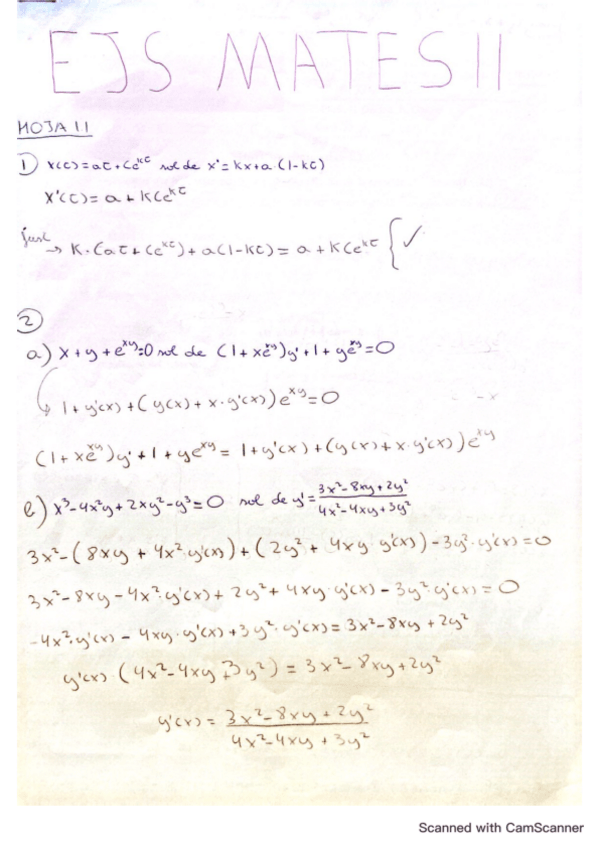 EJS MATES II
HOJA 1.1
① x(t)=at+Ce^{kt} sol de x'=kx+a(1-kt)
x'(t)=a+kCe^{kt}
→ k·(at+Ce^{kt})+a(1-kt)=a+kCe^{kt} { ✓
②
a) x+y+e^{xy}=0 sol de (1+xe^{xy})y'+1+ye^{xy}=0
1+y'(x)+(y(x)+x·y'(x))e^{xy}=0
(1+xe^{xy})y'+1+ye^{xy}=1+y'(x)+(y(x)+x·y'(x))e^{xy}
x³-4x²y+2xy²-y³=0 sol de y'=\frac{3x²-8xy+2y²}{4x²-4xy+3y²}
3x²-(8xy+4x²·y'(x))+(2y²+4xy·y'(x))-3y²·y'(x)=0
3x²-8xy-4x²·y'(x)+2y²+4xy·y'(x)-3y²·y'(x)=0
-4x²·y'(x)-4xy·y'(x)+3y²·y'(x)=3x²-8xy+2y²
y'(x)·(4x²-4xy+3y²)=3x²-8xy+2y²
y'(x)=\frac{3x²-8xy+2y²}{4x²-4xy+3y²}
Scanned with CamScanner